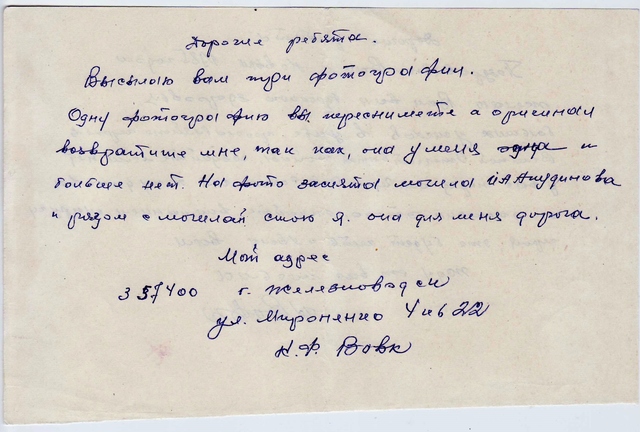 Дорогие ребята.
Высылаю вам три фотографии.
Одну фотографию вы переснимете а оригинал
возвратите мне, так как, она у меня одна и
больше нет. На фото заснята могила И А Акудинова
и рядом с могилой стою я. она для меня дорога.
Мой адрес
357400 г. Железноводск
ул. Мироненко 4 кв 22
Н. Ф. Вовк